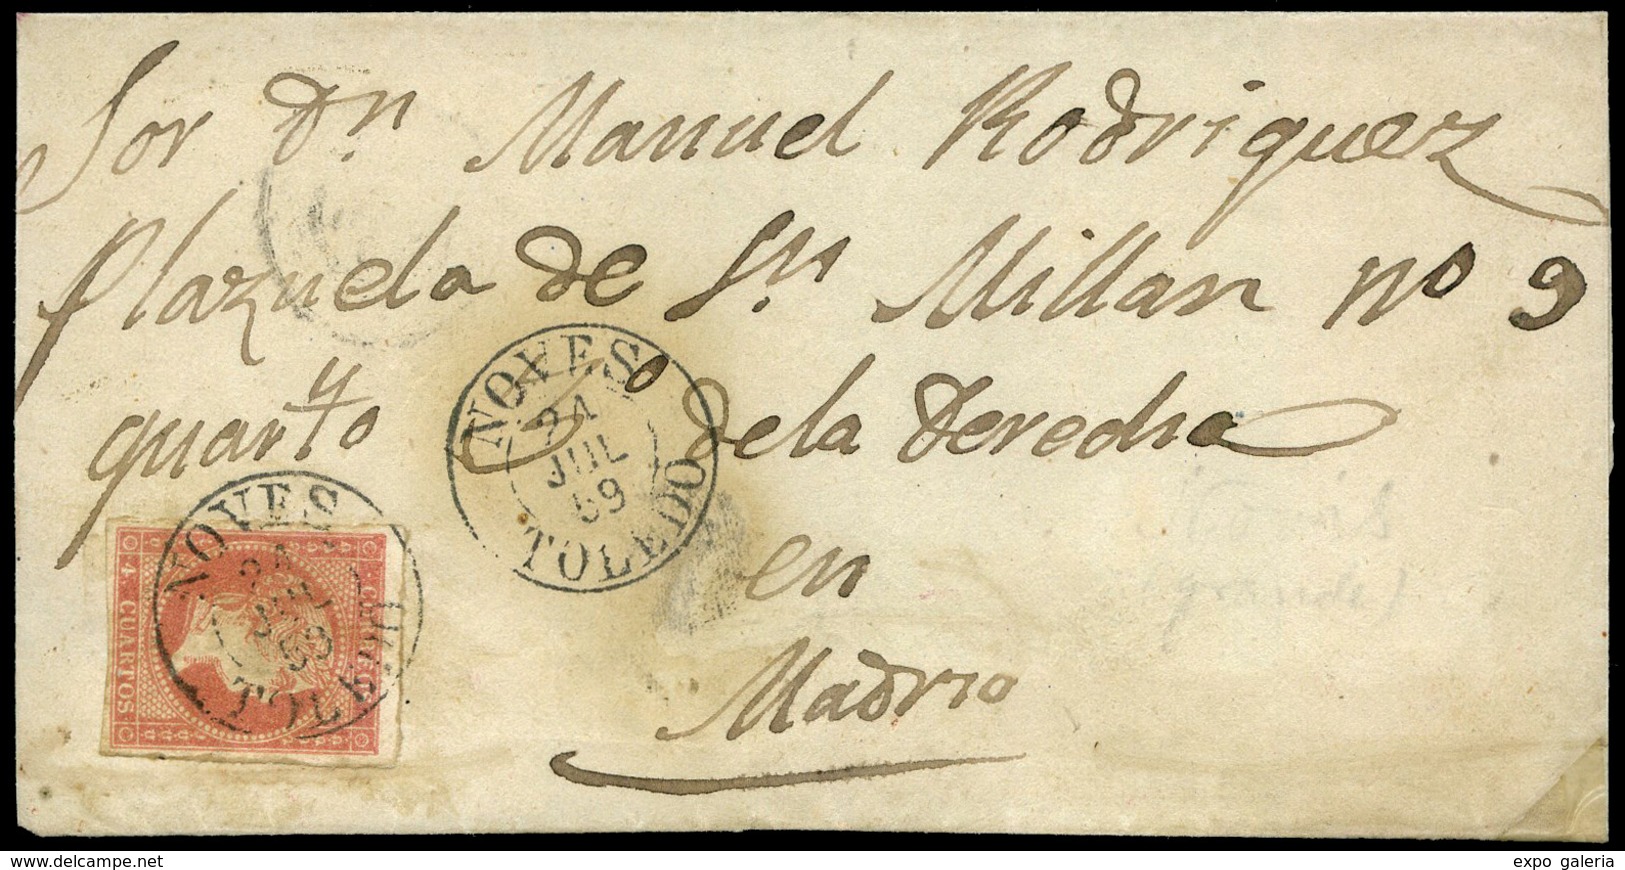 Sor Dn Manuel Rodriguez
Plazuela de Sn Millan no 9
quarto 4o de la Derecha
en
Madrid
NOVES
24
JUL
59
TOLEDO
NOVES
24
JUL
59
TOLEDO
4 CUARTOS
CORREOS
www.delcampe.net
expo galeria